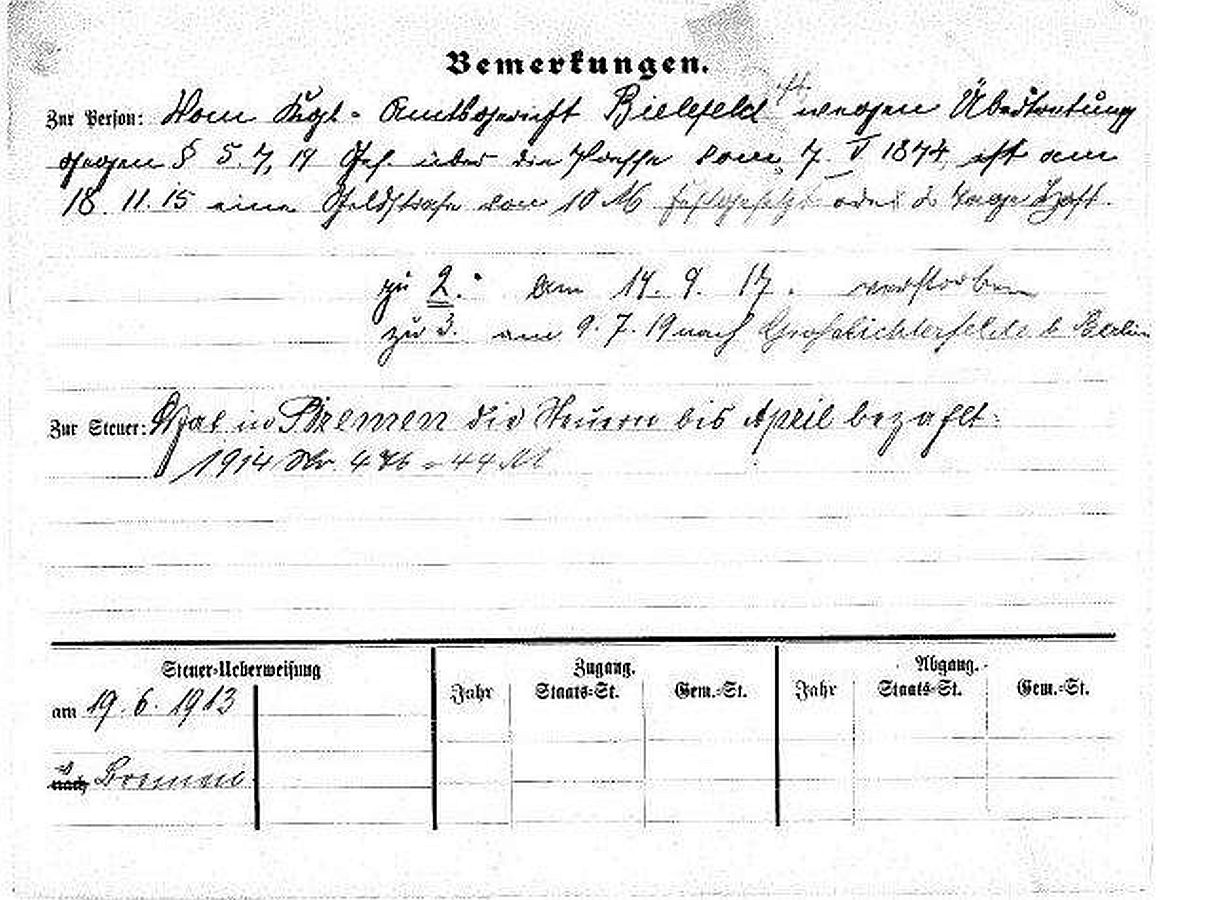 Bemerkungen.
Zur Person: Vom Kgl. Amtsgericht Bielefeld wegen Übertretung
gegen § 5. 7, 19 Ges. über die Presse vom 7. V 1874 ist am
18. 11. 15 eine Geldstrafe von 10 M festgesetzt oder 2 Tage Haft.
zu 2. am 14. 9. 17. verstorben
zu 3. am 9. 7. 19 nach Großlichterfelde b. Berlin
Zur Steuer: Hat in Bremen die Steuern bis April bezahlt.
1914 Nr. 476 = 44 M
Steuer-Ueberweisung Zugang. Abgang.
Jahr Staats-St. Gem.-St. Jahr Staats-St. Gem.-St.
am 19. 6. 1913
nach Bremen